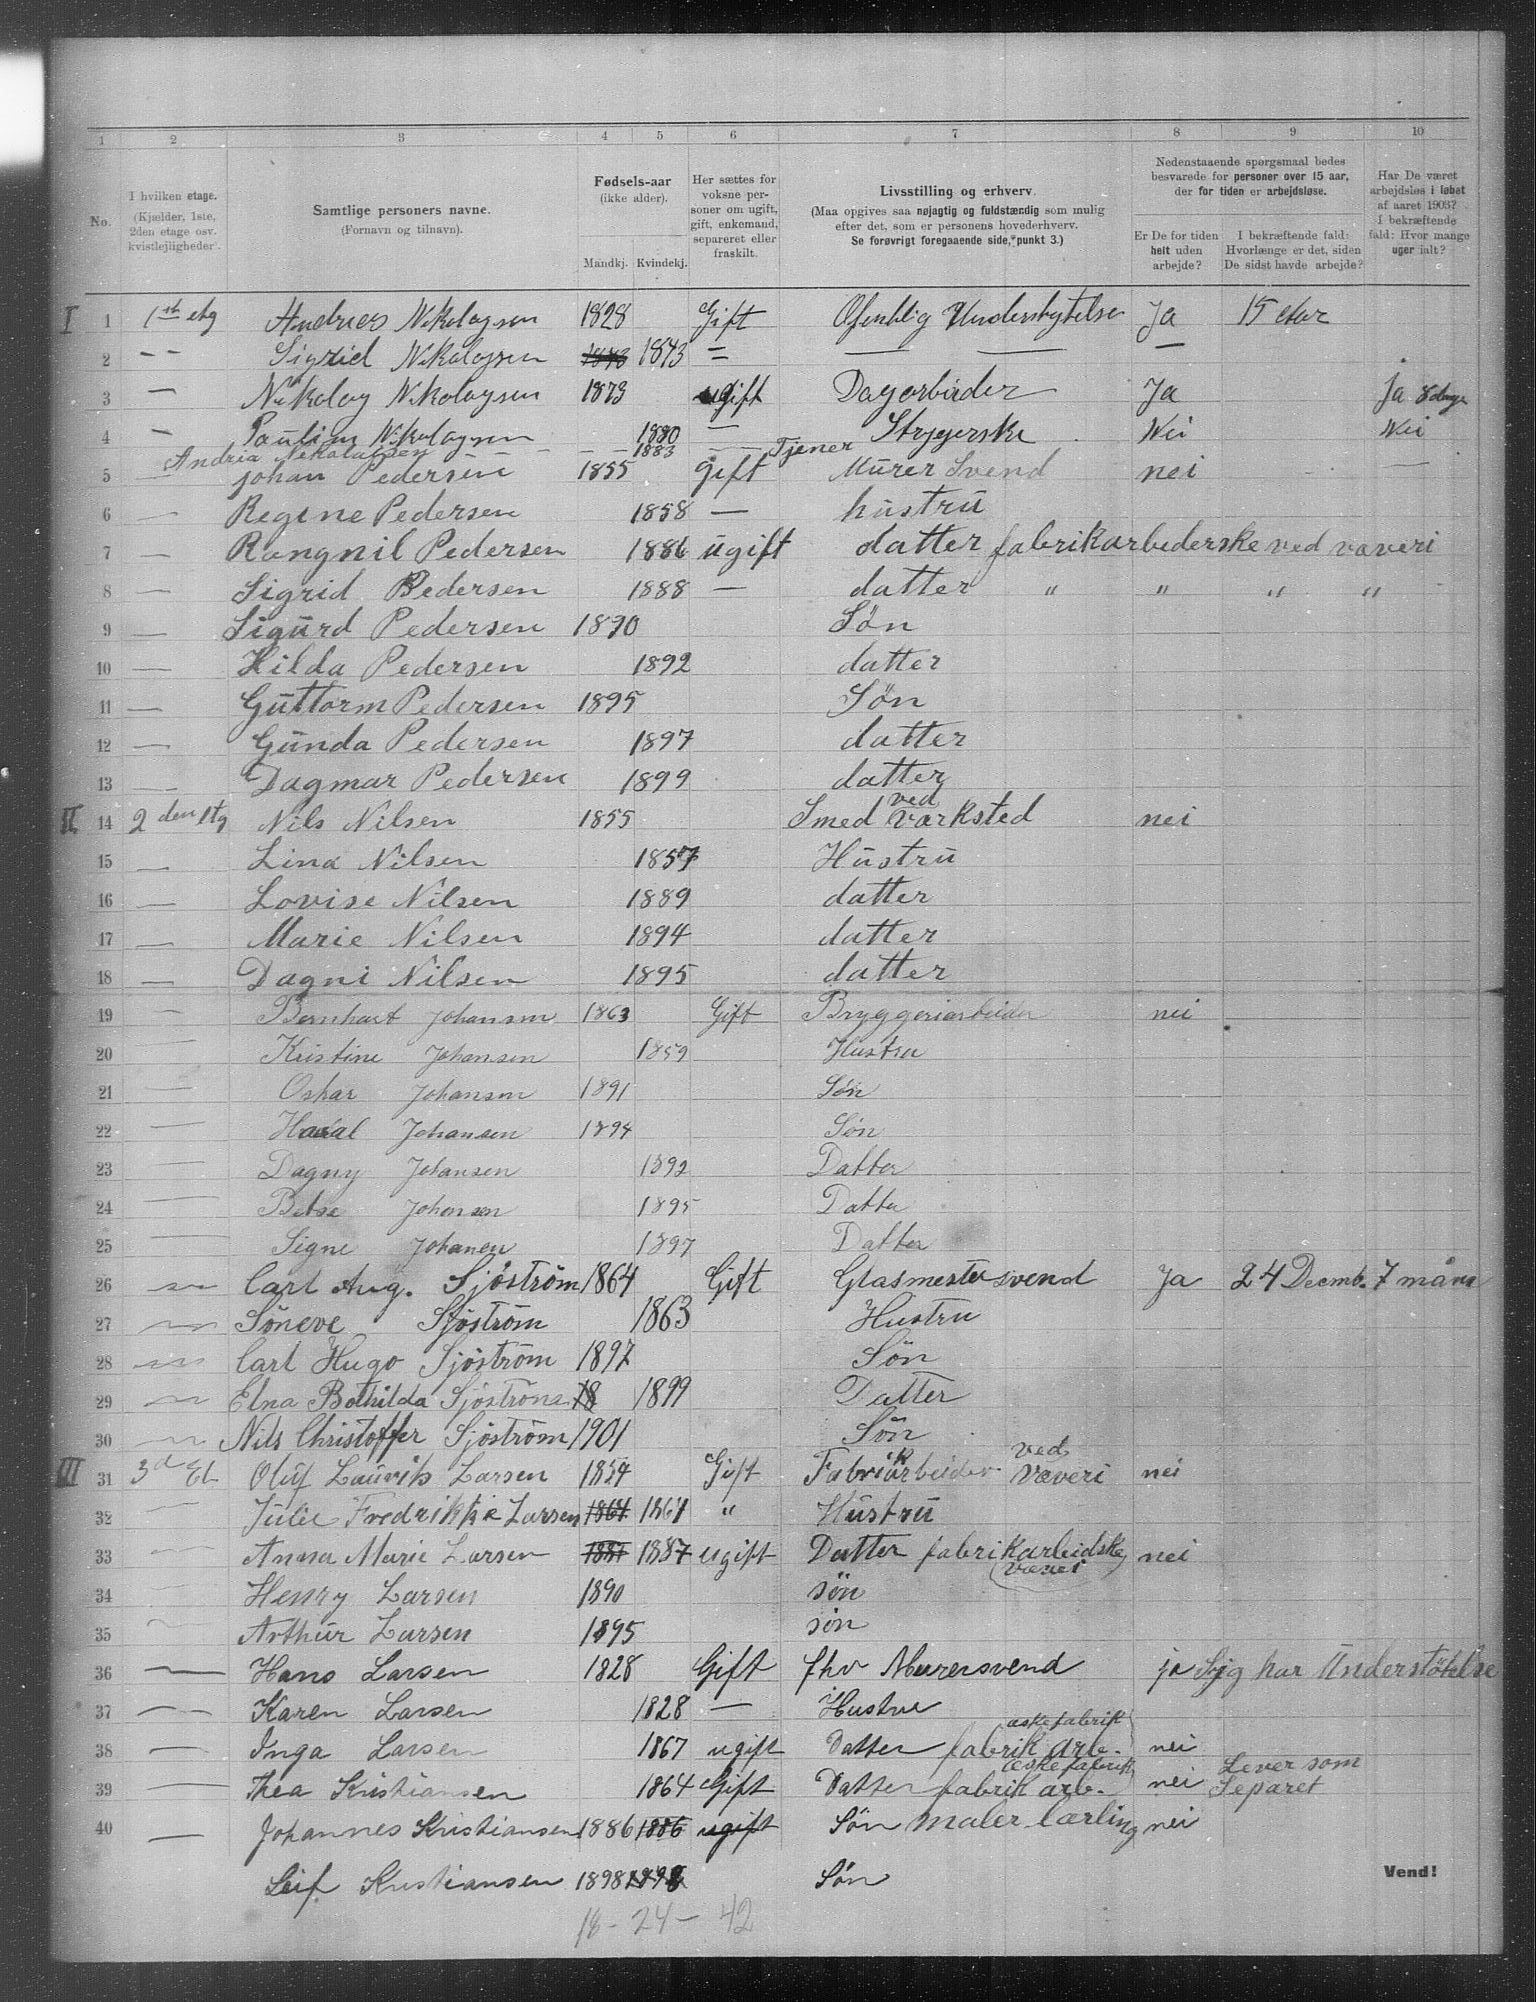 1 2 3 4 5 6 7 8 9 10
No.
I hvilken etage. (Kjælder, 1ste, 2den etage osv. kvistlejligheder).
Samtlige personers navne. (Fornavn og tilnavn).
Fødsels-aar (ikke alder). Mandkj. Kvindekj.
Her sættes for voksne personer om ugift, gift, enkemand, separeret eller fraskilt.
Livsstilling og erhverv. (Maa opgives saa nøjagtig og fuldstændig som mulig efter det, som er personens hovederhverv. Se forøvrigt foregaaende side, punkt 3.)
Nedenstaaende spørgsmaal bedes besvarede for personer over 15 aar, der for tiden er arbejdsløse.
Er De for tiden helt uden arbejde?
I bekræftende fald: Hvorlænge er det, siden De sidst havde arbejde?
Har De været arbejdsløs i løbet af aaret 1903? I bekræftende fald: Hvor mange uger ialt?
I 1 1ste etg Andreas Nikolaysen 1828 Gift Ofentlig Understytelse Ja 15 eter
2 – – Sigrid Nikolaysen 1843 1843 = — — —
3 – Nikolay Nikolaysen 1873 ugift Dagarbeider Ja Ja 8 dage
4 – Paulina Nikolaysen 1880 — Strygerske Nei Nei
Andrea Nikolaysen – – – 1883 — Tjener
5 — Johan Pedersen 1855 gift Murer Svend nei — —
6 — Regine Pedersen 1858 — hustru
7 — Rangnil Pedersen 1886 ugift datter fabrikarbederske ved væveri
8 — Sigrid Pedersen 1888 — datter " " " "
9 — Sigurd Pedersen 1890 Søn
10 — Hilda Pedersen 1892 datter
11 — Guttorm Pedersen 1895 Søn
12 — Gunda Pedersen 1897 datter
13 — Dagmar Pedersen 1899 datter
II 14 2den Etg Nils Nilsen 1855 Smed ved Værksted nei
15 — Lina Nilsen 1857 Hustru
16 — Lovise Nilsen 1889 datter
17 — Marie Nilsen 1894 datter
18 — Dagni Nilsen 1895 datter
19 — Bernhart Johansen 1863 Gift Bryggeriarbeider nei
20 — Kristine Johansen 1859 Hustru
21 — Oskar Johansen 1891 Søn
22 — Johansen 1894 Søn
23 — Dagny Johansen 1892 Datter
24 — Betse Johansen 1895 Datter
25 — Signe Johanen 1897 Datter
26 — Carl Aug. Sjöström 1864 Gift Glasmestersvend Ja 24 Decmb. 7 månr
27 — Söneve Sjöström 1863 Hustru
28 — Carl Hugo Sjöström 1897 Sön
29 — Elna Bothilda Sjöström 18 1899 Datter
30 — Nils Christoffer Sjöström 1901 Sön
III 31 3d Et Oluf Lauvits Larsen 1854 Gift Fabrikarbeider ved Væveri nei
32 Julie Fredrikke Larsen 1864 1864 " Hustru
33 — Anna Marie Larsen 1887 1887 ugift Datter fabrikarbeidske (væveri) nei
34 — Henry Larsen 1890 søn
35 — Arthur Larsen 1895 søn
36 — Hans Larsen 1828 Gift fhv Murersvend ja Syg har Understötelse
37 — Karen Larsen 1828 — Hustru
38 — Inga Larsen 1867 ugift Datter fabrik arb. æskefabrik nei
39 — Thea Kristiansen 1864 Gift Datter fabrik arb. æskefabrik nei Lever som Separet
40 — Johannes Kristiansen 1886 1886 ugift Søn maler lærling nei
Leif Kristiansen 1898 1898 Søn
Vend!
18 – 24 – 42